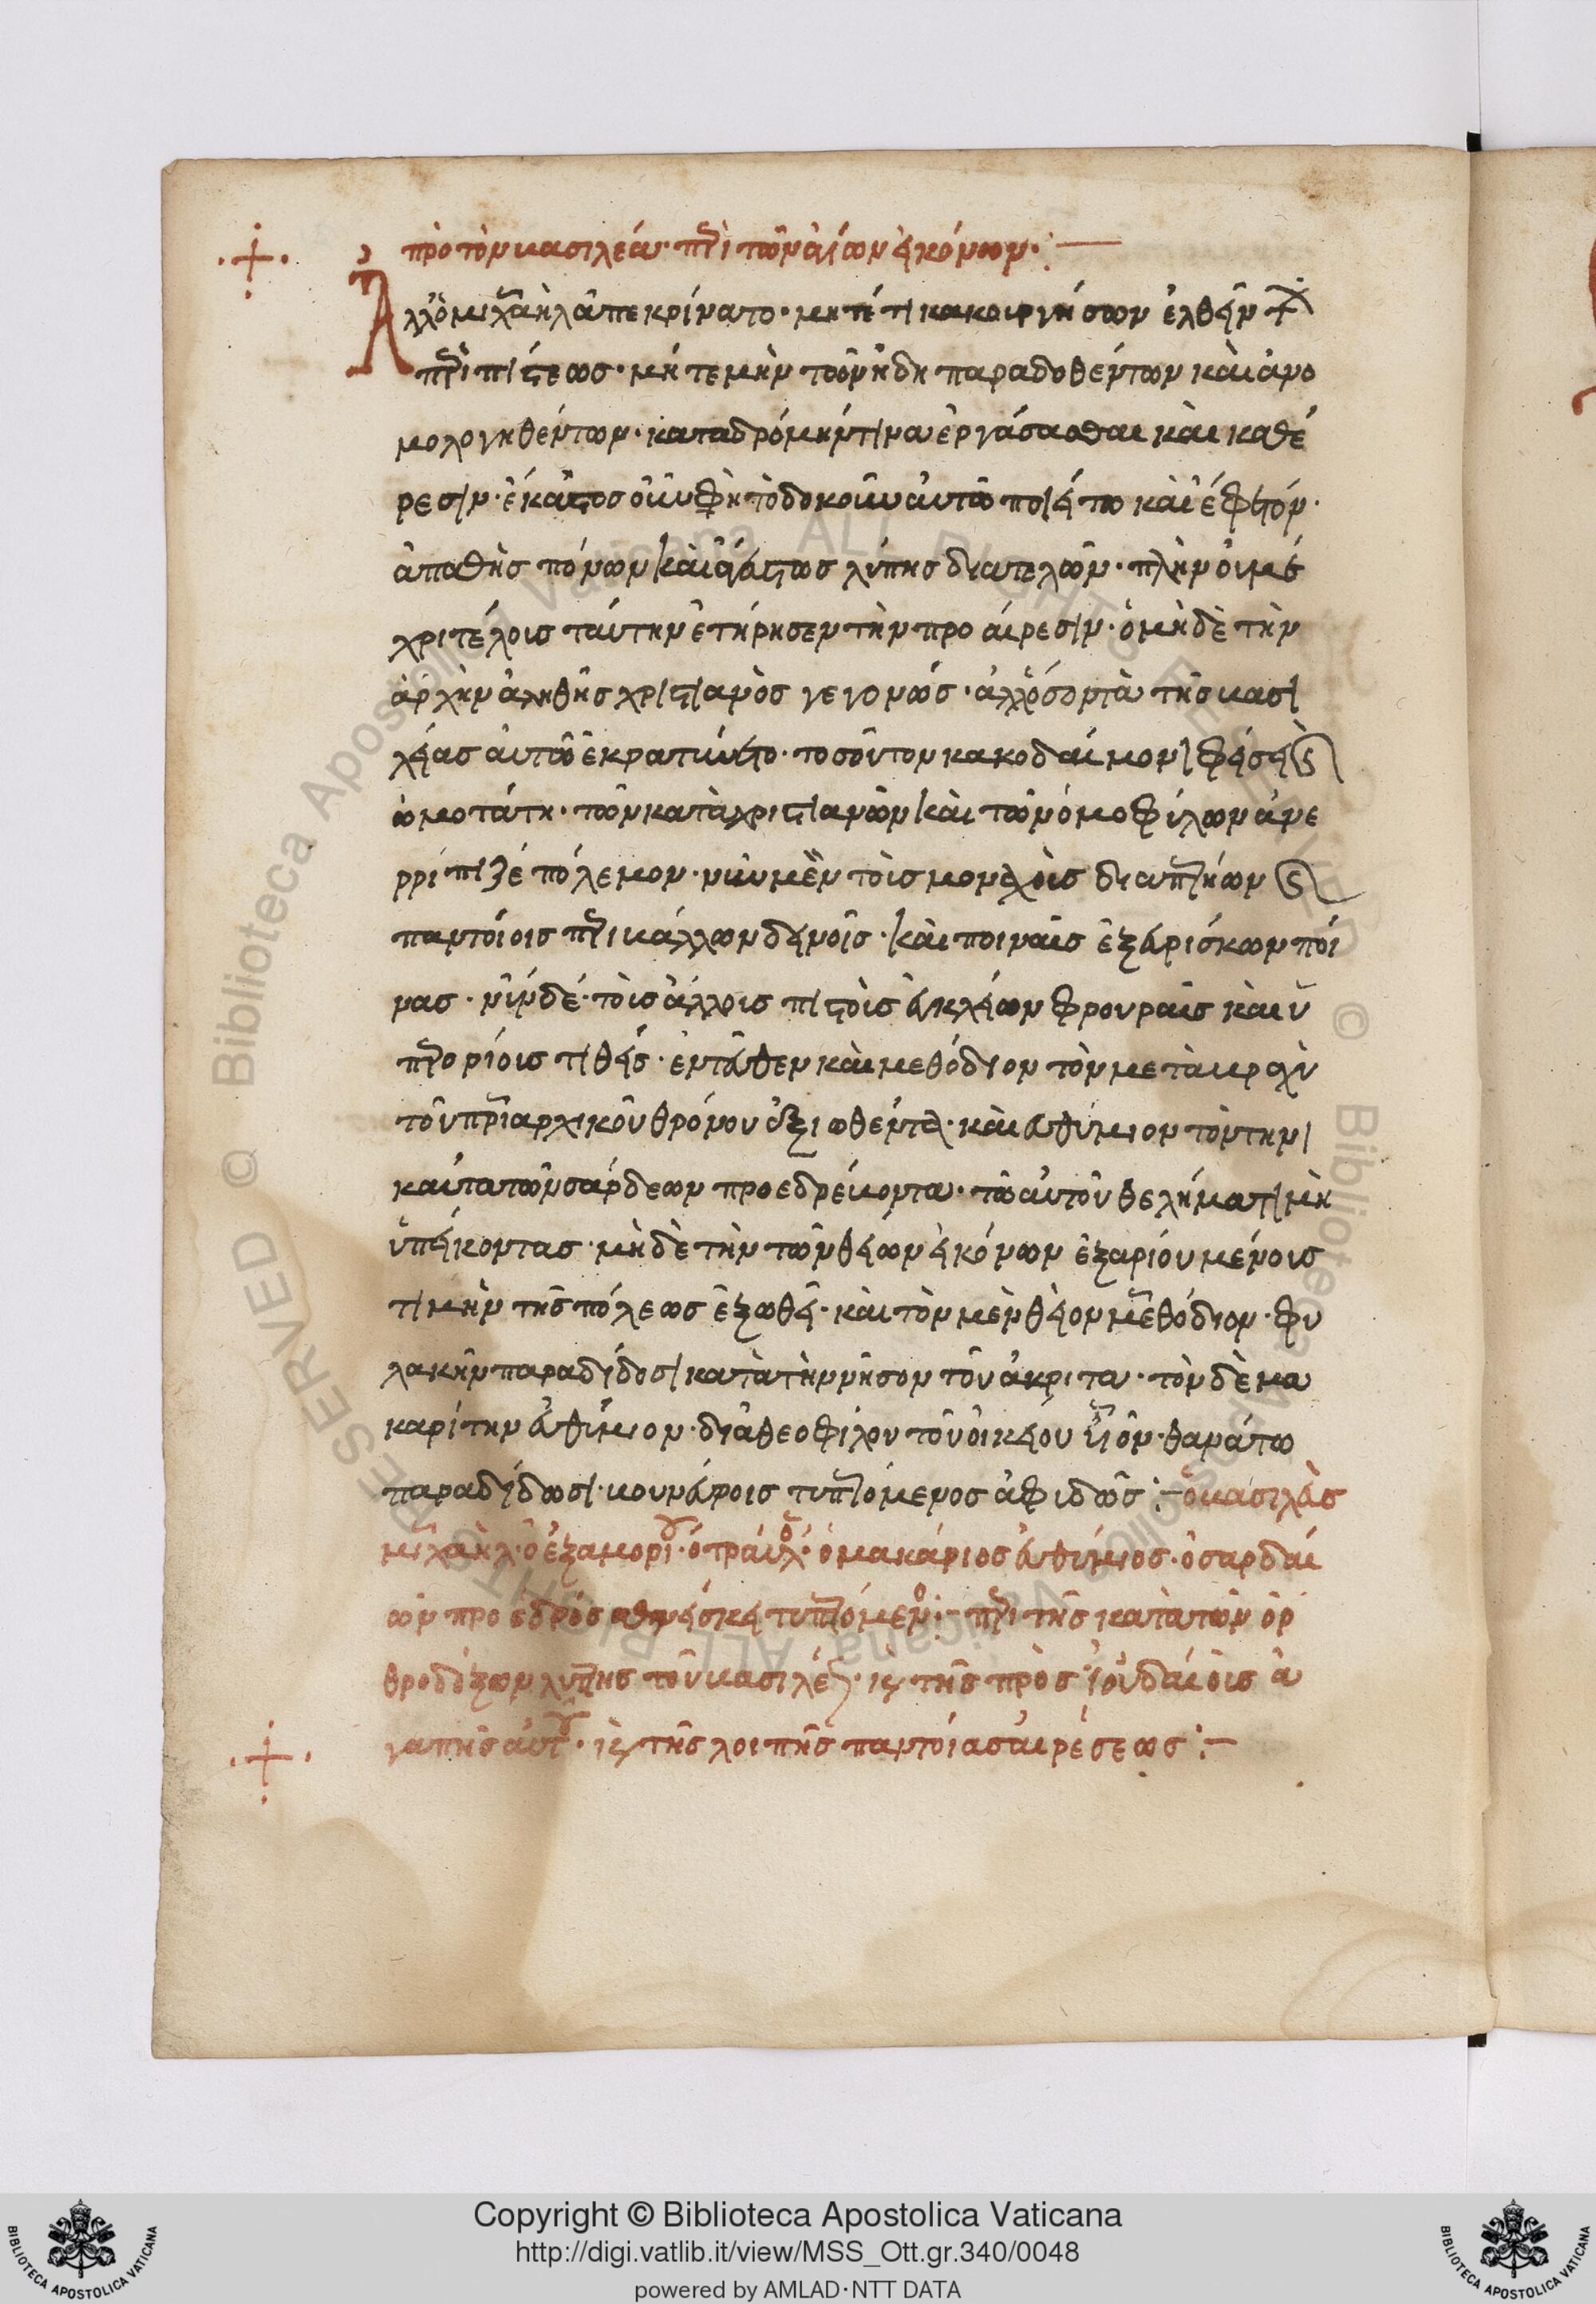 πρὸ τὸν βασιλέα· περὶ τῶν ἁγίων εἰκόνων·:—
Ἀλλ' ὁ μιχαὴλ ἀπεκρίνατο· μητέ τι κακουργήσων ἐλθεῖν
περὶ πίστεως· μήτε μὴν τῶν ἤδη παραδοθέντων καὶ ἀνο
μολογηθέντων· καταδρόμην τινα ἐργάσασθαι καὶ καθέ
ρεσιν· ἕκαστος οὖν φη τὸ δοκοῦν αὐτῶ ποιείτω καὶ ἐφετόν·
ἀπαθὴς πόνων καὶ ἄγευστος λύπης διατελῶν· πλὴν οὐ μέ
χρι τέλους ταύτην ἐτήρησεν τὴν προαίρεσιν· ὁ μηδὲ τὴν
ἀρχὴν ἀληθὴς χριστιανὸς γεγονώς· ἀλλ' ὅσον τὰ τῆς βασι
λείας αὐτῶ ἐκρατύνετο· τοσοῦτον κακοδαίμονι φύσει
ὠμοτάτη· τῶν κατὰ χριστιανῶν καὶ τῶν ὁμοφύλων ἀνε
ρρίπιζέ πόλεμον· νῦν μὲν τοῖς μοναχοῖς διαπερ
παντοίοις περιβάλλων δεινοῖς· καὶ ποιναῖς ἐξευρίσκων ποι
νας· νῦν δέ· τοῖς ἄλλοις πιστοῖς εὐκλείων φρουραῖς καὶ ὑ
περορίοις τιθείς· ἐντεῦθεν καὶ μεθόδιον τὸν μετὰ βραχὺ
τοῦ πατριαρχικοῦ θρόνου ἀξιωθέντα· καὶ εὐθύμιον τὸν τηνι
καῦτα τῶν σάρδεων προεδρεύοντα· τῶ αὐτοῦ θελήματι μὴ
ὑπείκοντας· μηδὲ τὴν τῶν θείων εἰκόνων ἐξαριουμένους
τιμὴν τῆς πόλεως ἐξωθεῖ· καὶ τὸν μὲν θεῖον μεθόδιον· φυ
λακὴν παραδίδοσι κατὰ τὴν νῆσον τοῦ ἀκρίτα· τὸν δὲ μα
καρίτην εὐθύμιον· διὰ θεοφίλου τοῦ οἰκείου υἱοῦ· θανάτω
παραδίδωσι· βουνεύροις τυπτόμενος ἀφιδῶς:— ὁ βασιλεὺς
μιχαὴλ· ὁ ἐξ ἀμορίου· ὁ τραυλός· ὁ μακάριος εὐθύμιος· ὁ σαρδαί
ων προεδρὸς τυπτόμενος:— περὶ τῆς κατὰ τῶν ὀρ
θοδόξων λύπης τοῦ βασιλέως· καὶ τῆς πρὸς ἰουδαίοις ἀ
γαπῆς αὐτοῦ· καὶ τῆς λοιπῆς παντοίας αἱρέσεως:—
Copyright © Biblioteca Apostolica Vaticana
http://digi.vatlib.it/view/MSS_Ott.gr.340/0048
powered by AMLAD·NTT DATA